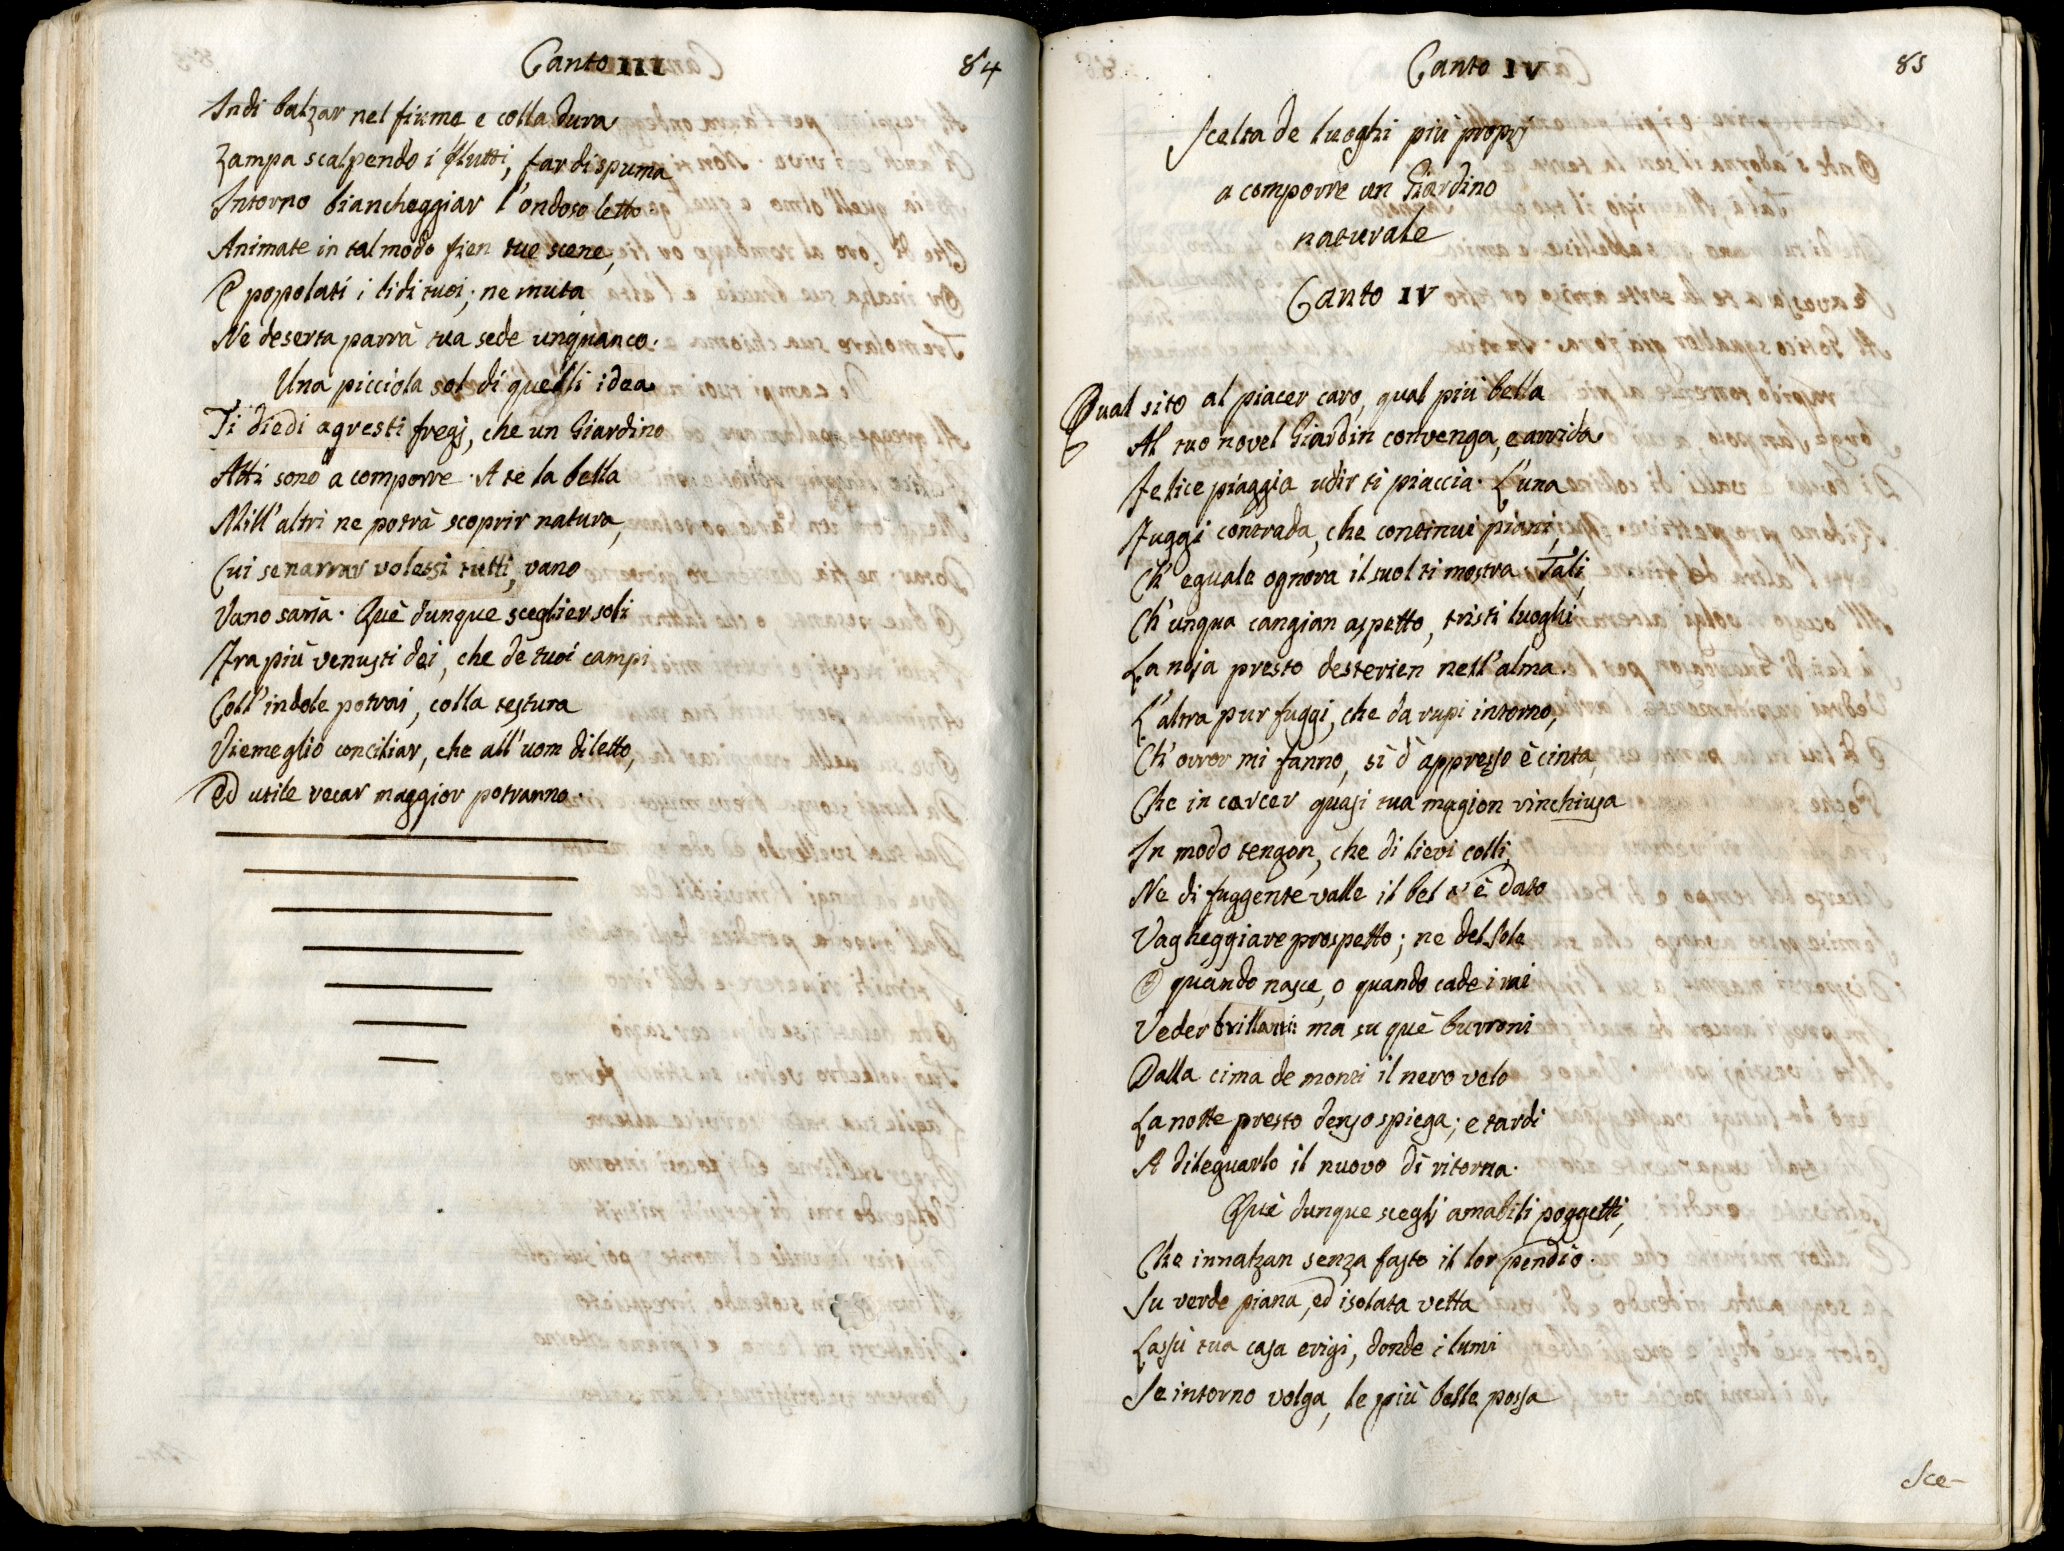 Canto III
84
Indi balzar nel fiume e colla dura
Zampa scalpendo i flutti, far di spuma
Intorno biancheggiar l'ondoso letto
Animate in tal modo fien tue scene,
E popolati i lidi tuoi; ne muta
Ne deserta parrà tua sede unquanco.
Una picciola sol di quelli idea
Ti diedi agresti fregj, che un Giardino
Atti sono a comporre. A te la bella
Mill'altri ne potrà scoprir natura,
Cui se narrar volessi tutti, vano
Vano saria. Què dunque sceglier soli
Fra più venusti dei, che de tuoi campi
Coll'indole potrai, colla testura
Viemeglio conciliar, che all'uom diletto,
Ed utile recar maggior potranno.
Canto IV
85
Scelta de luoghi più proprj
a comporre un Giardino
naturale
Canto IV
Qual sito al piacer caro, qual più bella
Al tuo novel Giardin convenga, e arrida
Felice piaggia udir ti piaccia. L'una
Fuggi contrada, che continui piani,
Ch'eguale ognora il suol ti mostra Tali,
Ch'unqua cangian aspetto, tristi luoghi
La noja presto desterien nell'alma.
L'altra pur fuggi, che da rupi intorno,
Ch'orror mi fanno, sì d'appresso è cinta,
Che in carcer quasi tua magion rinchiusa
In modo tengon, che di lievi colli,
Ne di fuggente valle il bel t'è dato
Vagheggiare prospetto; ne del Sole
O quando nasce, o quando cade i rai
Veder brillanti: ma su què burroni
Dalla cima de monti il nero velo
La notte presto denso spiega; e tardi
A dileguarlo il nuovo dì ritorna.
Què dunque scegli amabili poggetti,
Che innalzan senza fasto il lor pendio.
Su verde piana, ed isolata vetta
Lassù tua casa erigi, donde i lumi
Se intorno volga, le più belle possa
Sce-